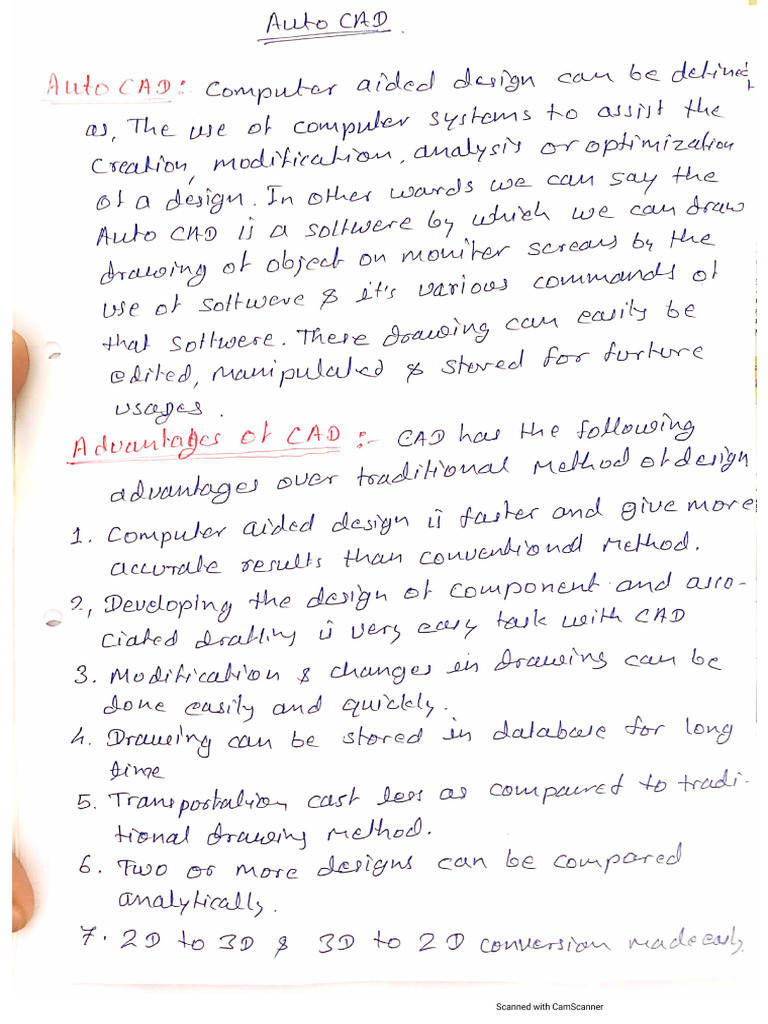 Auto CAD.
Auto CAD:- Computer aided design can be defined
as, The use of computer systems to assist the
Creation, modification, analysis or optimization
of a design. In other wards we can say the
Auto CAD is a softwere by which we can draw
drawing of object on moniter screans by the
use of softwere & it's various commands of
that softwere. There drawing can easily be
edited, manipulated & stored for furture
usages.
Advantages of CAD:- CAD has the following
advantages over traditional method of design
1. Computer aided design is faster and give more
accurate results than conventional method.
2, Developing the design of component and asso-
ciated drafting is very easy task with CAD
3. Modification & changes in drawing can be
done easily and quickly.
4. Drawing can be stored in database for long
time
5. Transportation cast less as compared to tradi-
tional drawing method.
6. Two or more designs can be compared
analytically.
7. 2D to 3D & 3D to 2D conversion made easy.
Scanned with CamScanner